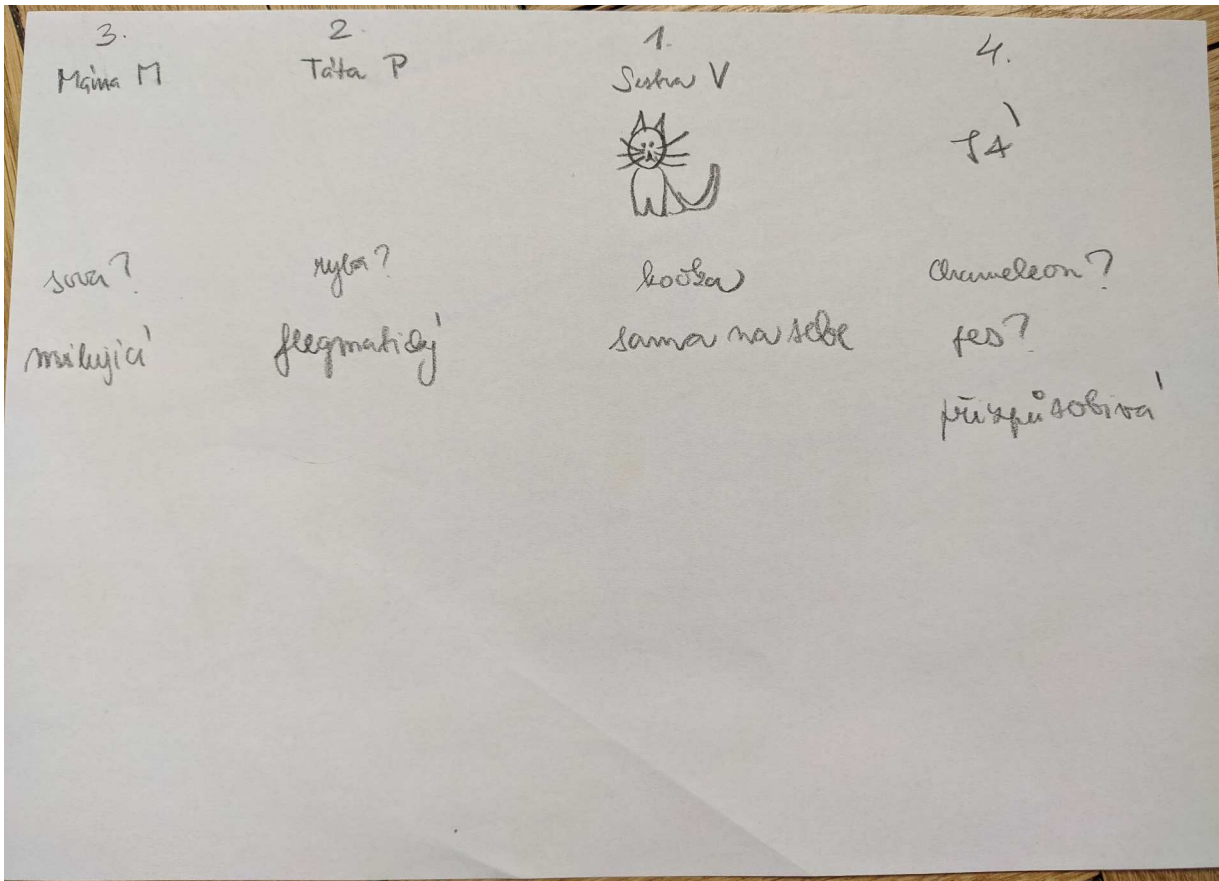 3.
Máma M
sova?
milující
2.
Táta P
ryba?
flegmatický
1.
Sestra V
kočka
sama na sebe
4.
JÁ
Chameleon?
pes?
přizpůsobivá